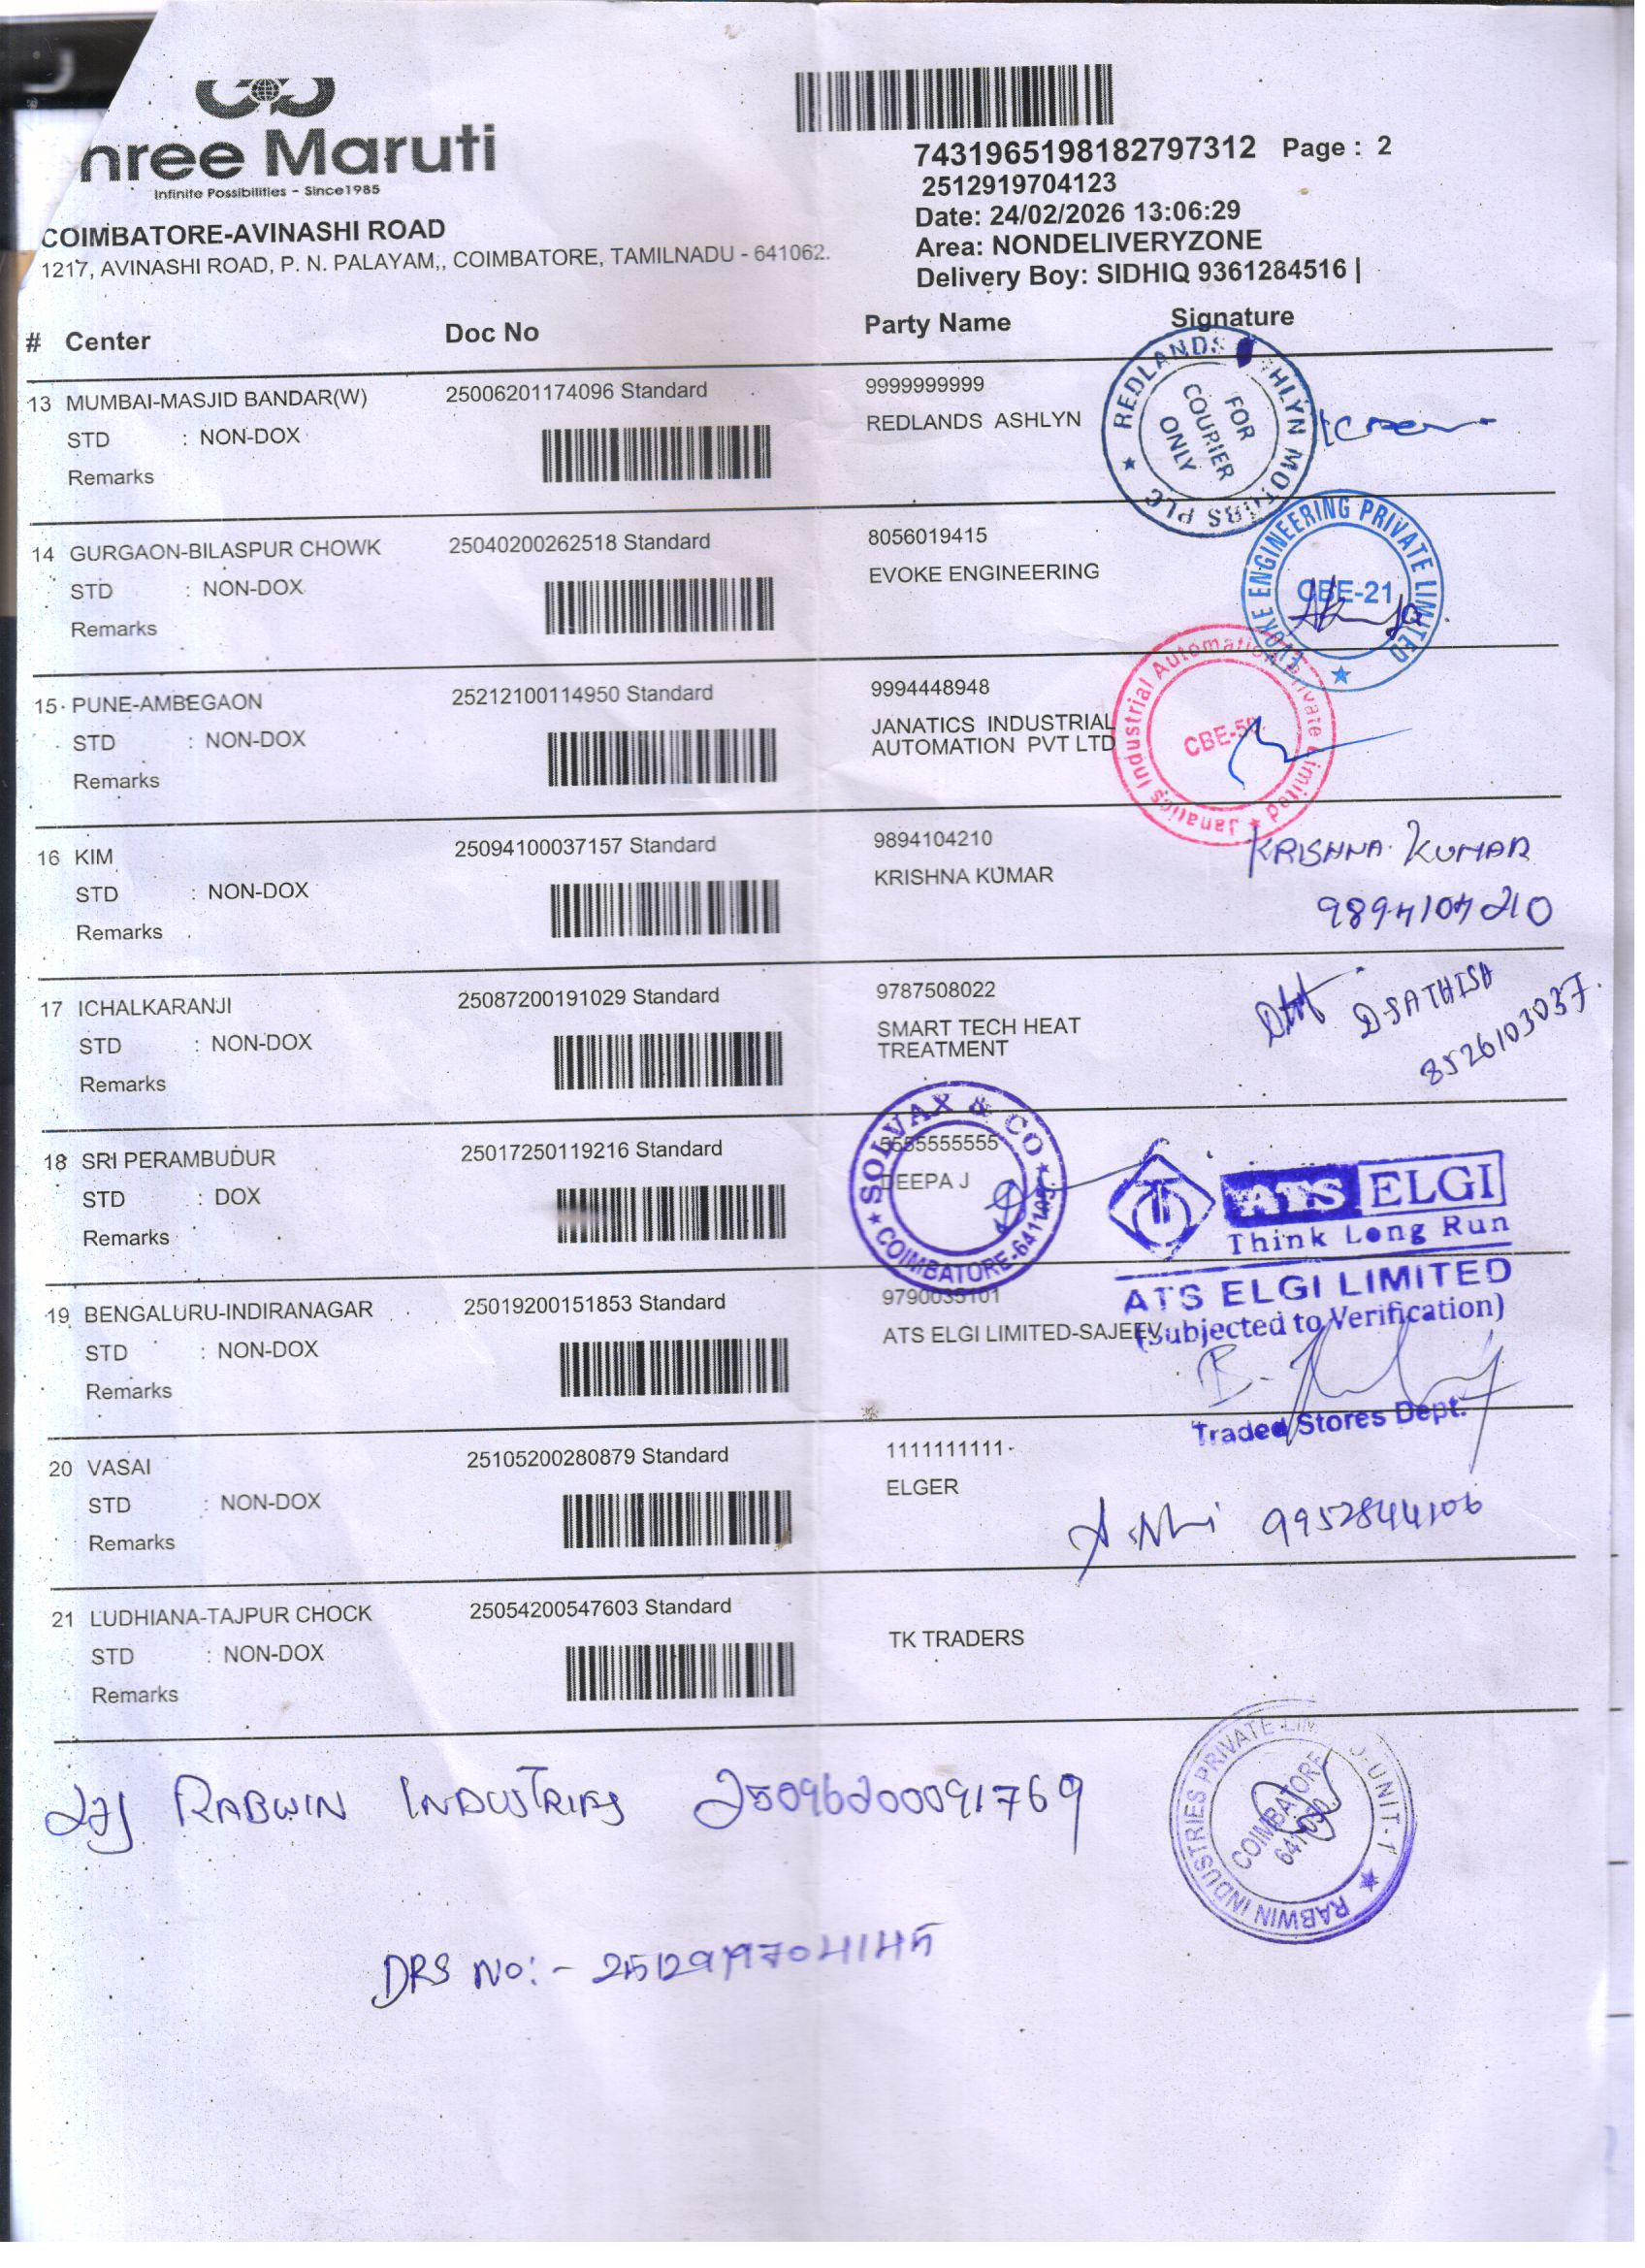 hree Maruti
Infinite Possibilities - Since1985
7431965198182797312 Page : 2
2512919704123
Date: 24/02/2026 13:06:29
Area: NONDELIVERYZONE
Delivery Boy: SIDHIQ 9361284516 |
COIMBATORE-AVINASHI ROAD
1217, AVINASHI ROAD, P. N. PALAYAM,, COIMBATORE, TAMILNADU - 641062.
# Center Doc No Party Name Signature
13 MUMBAI-MASJID BANDAR(W) 25006201174096 Standard 9999999999
STD : NON-DOX REDLANDS ASHLYN
Remarks
REDLANDS ASHLYN MOTORS PLC
FOR COURIER ONLY
14 GURGAON-BILASPUR CHOWK 25040200262518 Standard 8056019415
STD : NON-DOX EVOKE ENGINEERING
Remarks
EVOKE ENGINEERING PRIVATE LIMITED
CBE-21
15 PUNE-AMBEGAON 25212100114950 Standard 9994448948
STD : NON-DOX JANATICS INDUSTRIAL
AUTOMATION PVT LTD
Remarks
Janatics Industrial Automation Private Limited
16 KIM 25094100037157 Standard 9894104210
STD : NON-DOX KRISHNA KUMAR
Remarks
KRISHNA KUMAR
9894104210
17 ICHALKARANJI 25087200191029 Standard 9787508022
STD : NON-DOX SMART TECH HEAT
TREATMENT
Remarks
D.SATHISH
8526103037.
18 SRI PERAMBUDUR 25017250119216 Standard 5555555555
STD : DOX DEEPA J
Remarks
SOLVAX & CO
COIMBATORE-641105.
ATS ELGI
Think Long Run
ATS ELGI LIMITED
(Subjected to Verification)
19 BENGALURU-INDIRANAGAR 25019200151853 Standard 9790035101
STD : NON-DOX ATS ELGI LIMITED-SAJEEV
Remarks
Traded Stores Dept.
20 VASAI 25105200280879 Standard 1111111111
STD : NON-DOX ELGER
Remarks
9952844106
21 LUDHIANA-TAJPUR CHOCK 25054200547603 Standard
STD : NON-DOX TK TRADERS
Remarks
22) RABWIN INDUSTRIES 25096200091769
RABWIN INDUSTRIES PRIVATE LIM
UNIT-1
COIMBATORE
DRS NO:- 2512919704145